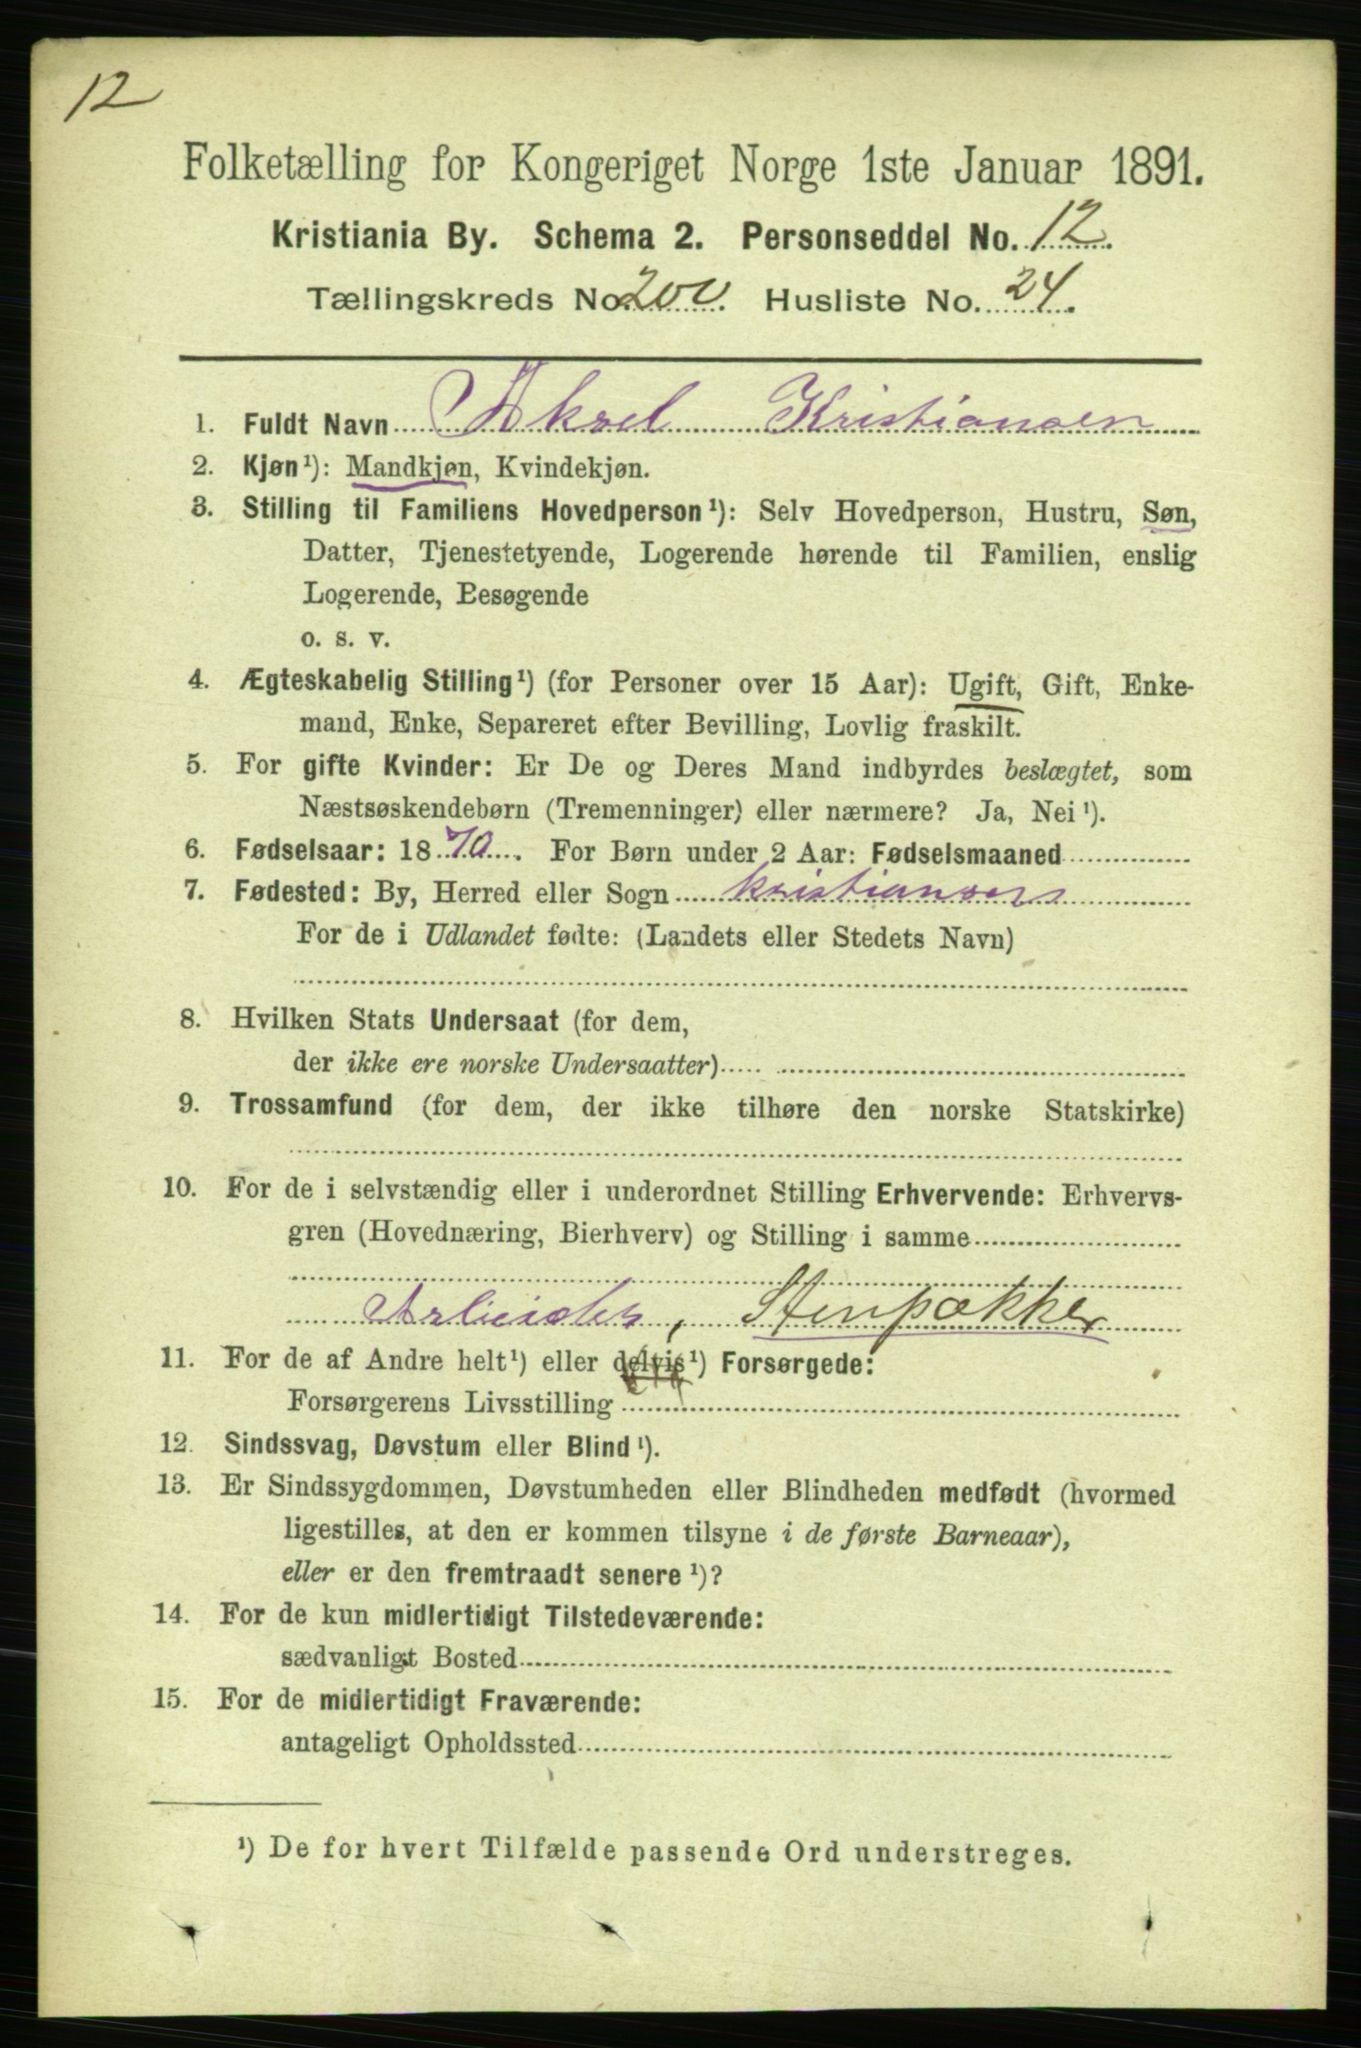 12
Folketælling for Kongeriget Norge 1ste Januar 1891.
Kristiania By. Schema 2. Personseddel No. 12.
Tællingskreds No. 200. Husliste No. 24.
1. Fuldt Navn Aksel Kristiansen
2. Kjøn¹): Mandkjøn, Kvindekjøn.
3. Stilling til Familiens Hovedperson¹): Selv Hovedperson, Hustru, Søn,
Datter, Tjenestetyende, Logerende hørende til Familien, enslig
Logerende, Besøgende
o. s. v.
4. Ægteskabelig Stilling¹) (for Personer over 15 Aar): Ugift, Gift, Enke-
mand, Enke, Separeret efter Bevilling, Lovlig fraskilt.
5. For gifte Kvinder: Er De og Deres Mand indbyrdes beslægtet, som
Næstsøskendebørn (Tremenninger) eller nærmere? Ja, Nei¹).
6. Fødselsaar: 1870. For Børn under 2 Aar: Fødselsmaaned
7. Fødested: By, Herred eller Sogn
For de i Udlandet fødte: (Landets eller Stedets Navn)
8. Hvilken Stats Undersaat (for dem,
der ikke ere norske Undersaatter)
9. Trossamfund (for dem, der ikke tilhøre den norske Statskirke)
10. For de i selvstændig eller i underordnet Stilling Erhvervende: Erhvervs-
gren (Hovednæring, Bierhverv) og Stilling i samme
Arbeider, Stenpukker
11. For de af Andre helt¹) eller delvis¹) Forsørgede:
Forsørgerens Livsstilling
12. Sindssvag, Døvstum eller Blind¹).
13. Er Sindssygdommen, Døvstumheden eller Blindheden medfødt (hvormed
ligestilles, at den er kommen tilsyne i de første Barneaar),
eller er den fremtraadt senere¹)?
14. For de kun midlertidigt Tilstedeværende:
sædvanligt Bosted
15. For de midlertidigt Fraværende:
antageligt Opholdssted
¹) De for hvert Tilfælde passende Ord understreges.